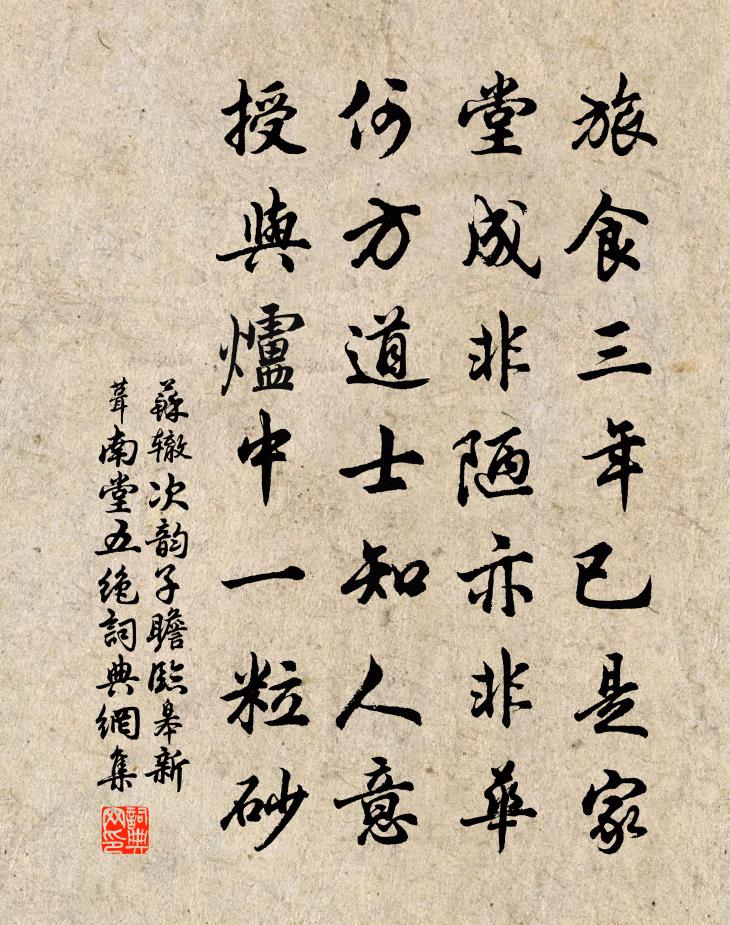 旅食三年已是家
堂成非陋亦非華
何方道士知人意
授與爐中一粒砂
蘇辙次韵子瞻臨皋新
葺南堂五绝詞典網集
詞典
网印